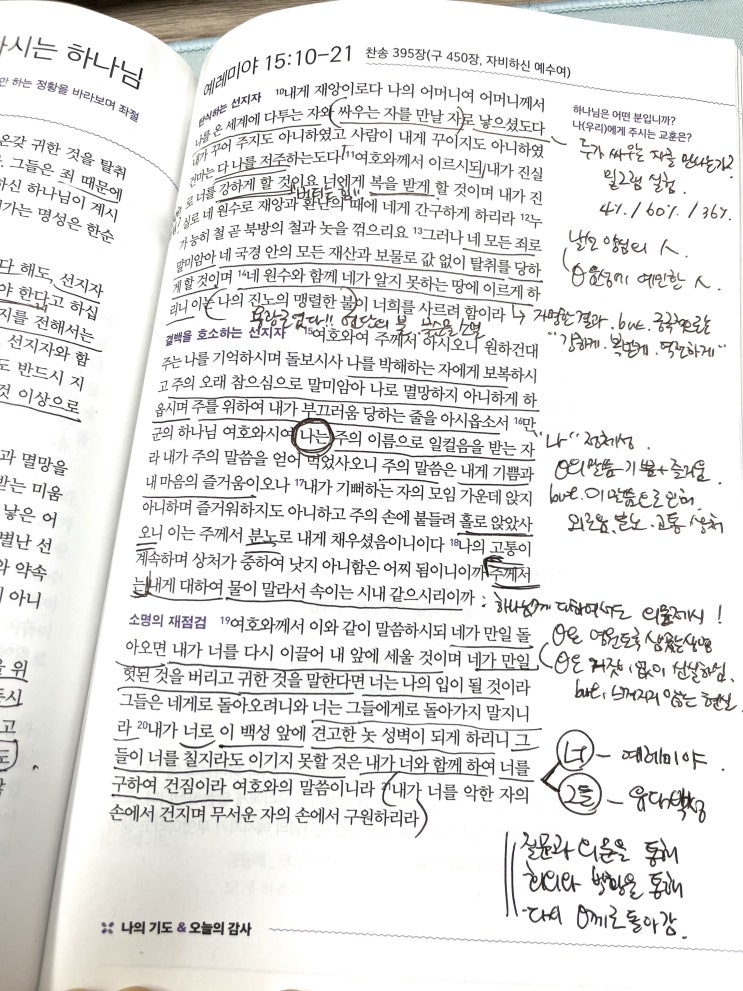 나시는 하나님
만 하는 정황을 바라보며 좌절
온갖 귀한 것을 탈취
그들은 죄 때문에
하신 하나님이 계시
가는 명성은 한순
다 해도, 선지자
야 한다고 하십
지를 전해서는
선지자와 함
도 반드시 지
것 이상으로
과 멸망을
받는 미움
낳은 어
별난 선
와 약속
이 아니
을 위
동시
고
도
예레미야 15:10-21 찬송 395장(구 450장, 자비하신 예수여)
탄식하는 선지자 10내게 재앙이로다 나의 어머니여 어머니께서
나를 온 세계에 다투는 자와 싸우는 자를 만날 자로 낳으셨도다
내가 꾸어 주지도 아니하였고 사람이 내게 꾸이지도 아니하였
건마는 다 나를 저주하는도다 11여호와께서 이르시되 내가 진실
로 너를 강하게 할 것이요 너에게 복을 받게 할 것이며 내가 진
실로 네 원수로 재앙과 환난의 때에 네게 간구하게 하리라 12누
가 능히 철 곧 북방의 철과 놋을 꺾으리요 13그러나 네 모든 죄로
말미암아 네 국경 안의 모든 재산과 보물로 값 없이 탈취를 당하
게 할 것이며 14네 원수와 함께 네가 알지 못하는 땅에 이르게 하
리니 이는 나의 진노의 맹렬한 불이 너희를 사르려 함이라
결백을 호소하는 선지자 15여호와여 주께서 아시오니 원하건대
주는 나를 기억하시며 돌보시사 나를 박해하는 자에게 보복하시
고 주의 오래 참으심으로 말미암아 나로 멸망하지 아니하게 하
옵시며 주를 위하여 내가 부끄러움 당하는 줄을 아시옵소서 16만
군의 하나님 여호와시여 나는 주의 이름으로 일컬음을 받는 자
라 내가 주의 말씀을 얻어 먹었사오니 주의 말씀은 내게 기쁨과
내 마음의 즐거움이오나 17내가 기뻐하는 자의 모임 가운데 앉지
아니하며 즐거워하지도 아니하고 주의 손에 붙들려 홀로 앉았사
오니 이는 주께서 분노로 내게 채우셨음이니이다 18나의 고통이
계속하며 상처가 중하여 낫지 아니함은 어찌 됨이니이까 주께서
는 내게 대하여 물이 말라서 속이는 시내 같으시리이까
소명의 재점검 19여호와께서 이와 같이 말씀하시되 네가 만일 돌
아오면 내가 너를 다시 이끌어 내 앞에 세울 것이며 네가 만일
헛된 것을 버리고 귀한 것을 말한다면 너는 나의 입이 될 것이라
그들은 네게로 돌아오려니와 너는 그들에게로 돌아가지 말지니
라 20내가 너로 이 백성 앞에 견고한 놋 성벽이 되게 하리니 그
들이 너를 칠지라도 이기지 못할 것은 내가 너와 함께 하여 너를
구하여 건짐이라 여호와의 말씀이니라 21내가 너를 악한 자의
손에서 건지며 무서운 자의 손에서 구원하리라
나의 기도 & 오늘의 감사
하나님은 어떤 분입니까?
나(우리)에게 주시는 교훈은?
누가 싸우는 자를 만나는가?
밀그램 실험
4% / 60% / 36%
음성에 예민한 人
자명한 결과. but. 궁극적으로
"강하게. 복받게.
"나" 정체성.
의 말씀-기쁨+즐거움.
but. 이 말씀으로 인해
외로움. 분노. 고통. 상처
: 하나님께 대하여서도 의문제시!
은 거짓 없이 신실하심.
but. 느껴지지 않는 현실
너 - 예레미야.
그들 - 유다백성
질문과 의문을 통해
회의와 방황을 통해
다시 께로 돌아감.